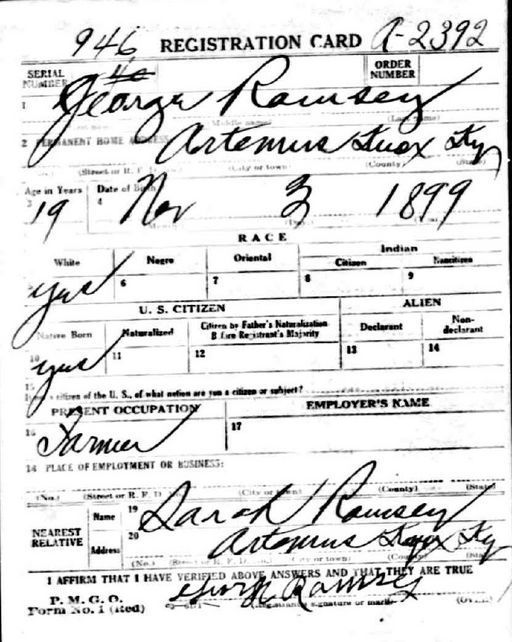 946 REGISTRATION CARD A-2392
SERIAL NUMBER
ORDER NUMBER
1 George Ramsey
(Middle name) (Last name)
2 PERMANENT HOME ADDRESS Artemus Knox Ky
(Street or R. F. D. (City or town) (County) (State)
Age in Years Date of Birth
3 4
19 Nov 3 1899
RACE
White Negro Oriental Indian
Citizen Noncitizen
yes 6 7 8 9
U. S. CITIZEN ALIEN
Native Born Naturalized Citizen by Father's Naturalization Before Registrant's Majority Declarant Non-declarant
10 yes 11 12 13 14
15
citizen of the U. S., of what nation are you a citizen or subject?
PRESENT OCCUPATION EMPLOYER'S NAME
16 Farmer 17
18 PLACE OF EMPLOYMENT OR BUSINESS:
(No.) (Street or R. F. D (City or town) (County) (State)
NEAREST RELATIVE
Name 19 Sarah Ramsey
Address 20 Artemus Knox Ky
(No.) (City or town) (State)
I AFFIRM THAT I HAVE VERIFIED ABOVE ANSWERS AND THAT THEY ARE TRUE
P. M. G. O.
Form No. 1 (Red) George Ramsey
(Registrant's signature or mark) (OVER)